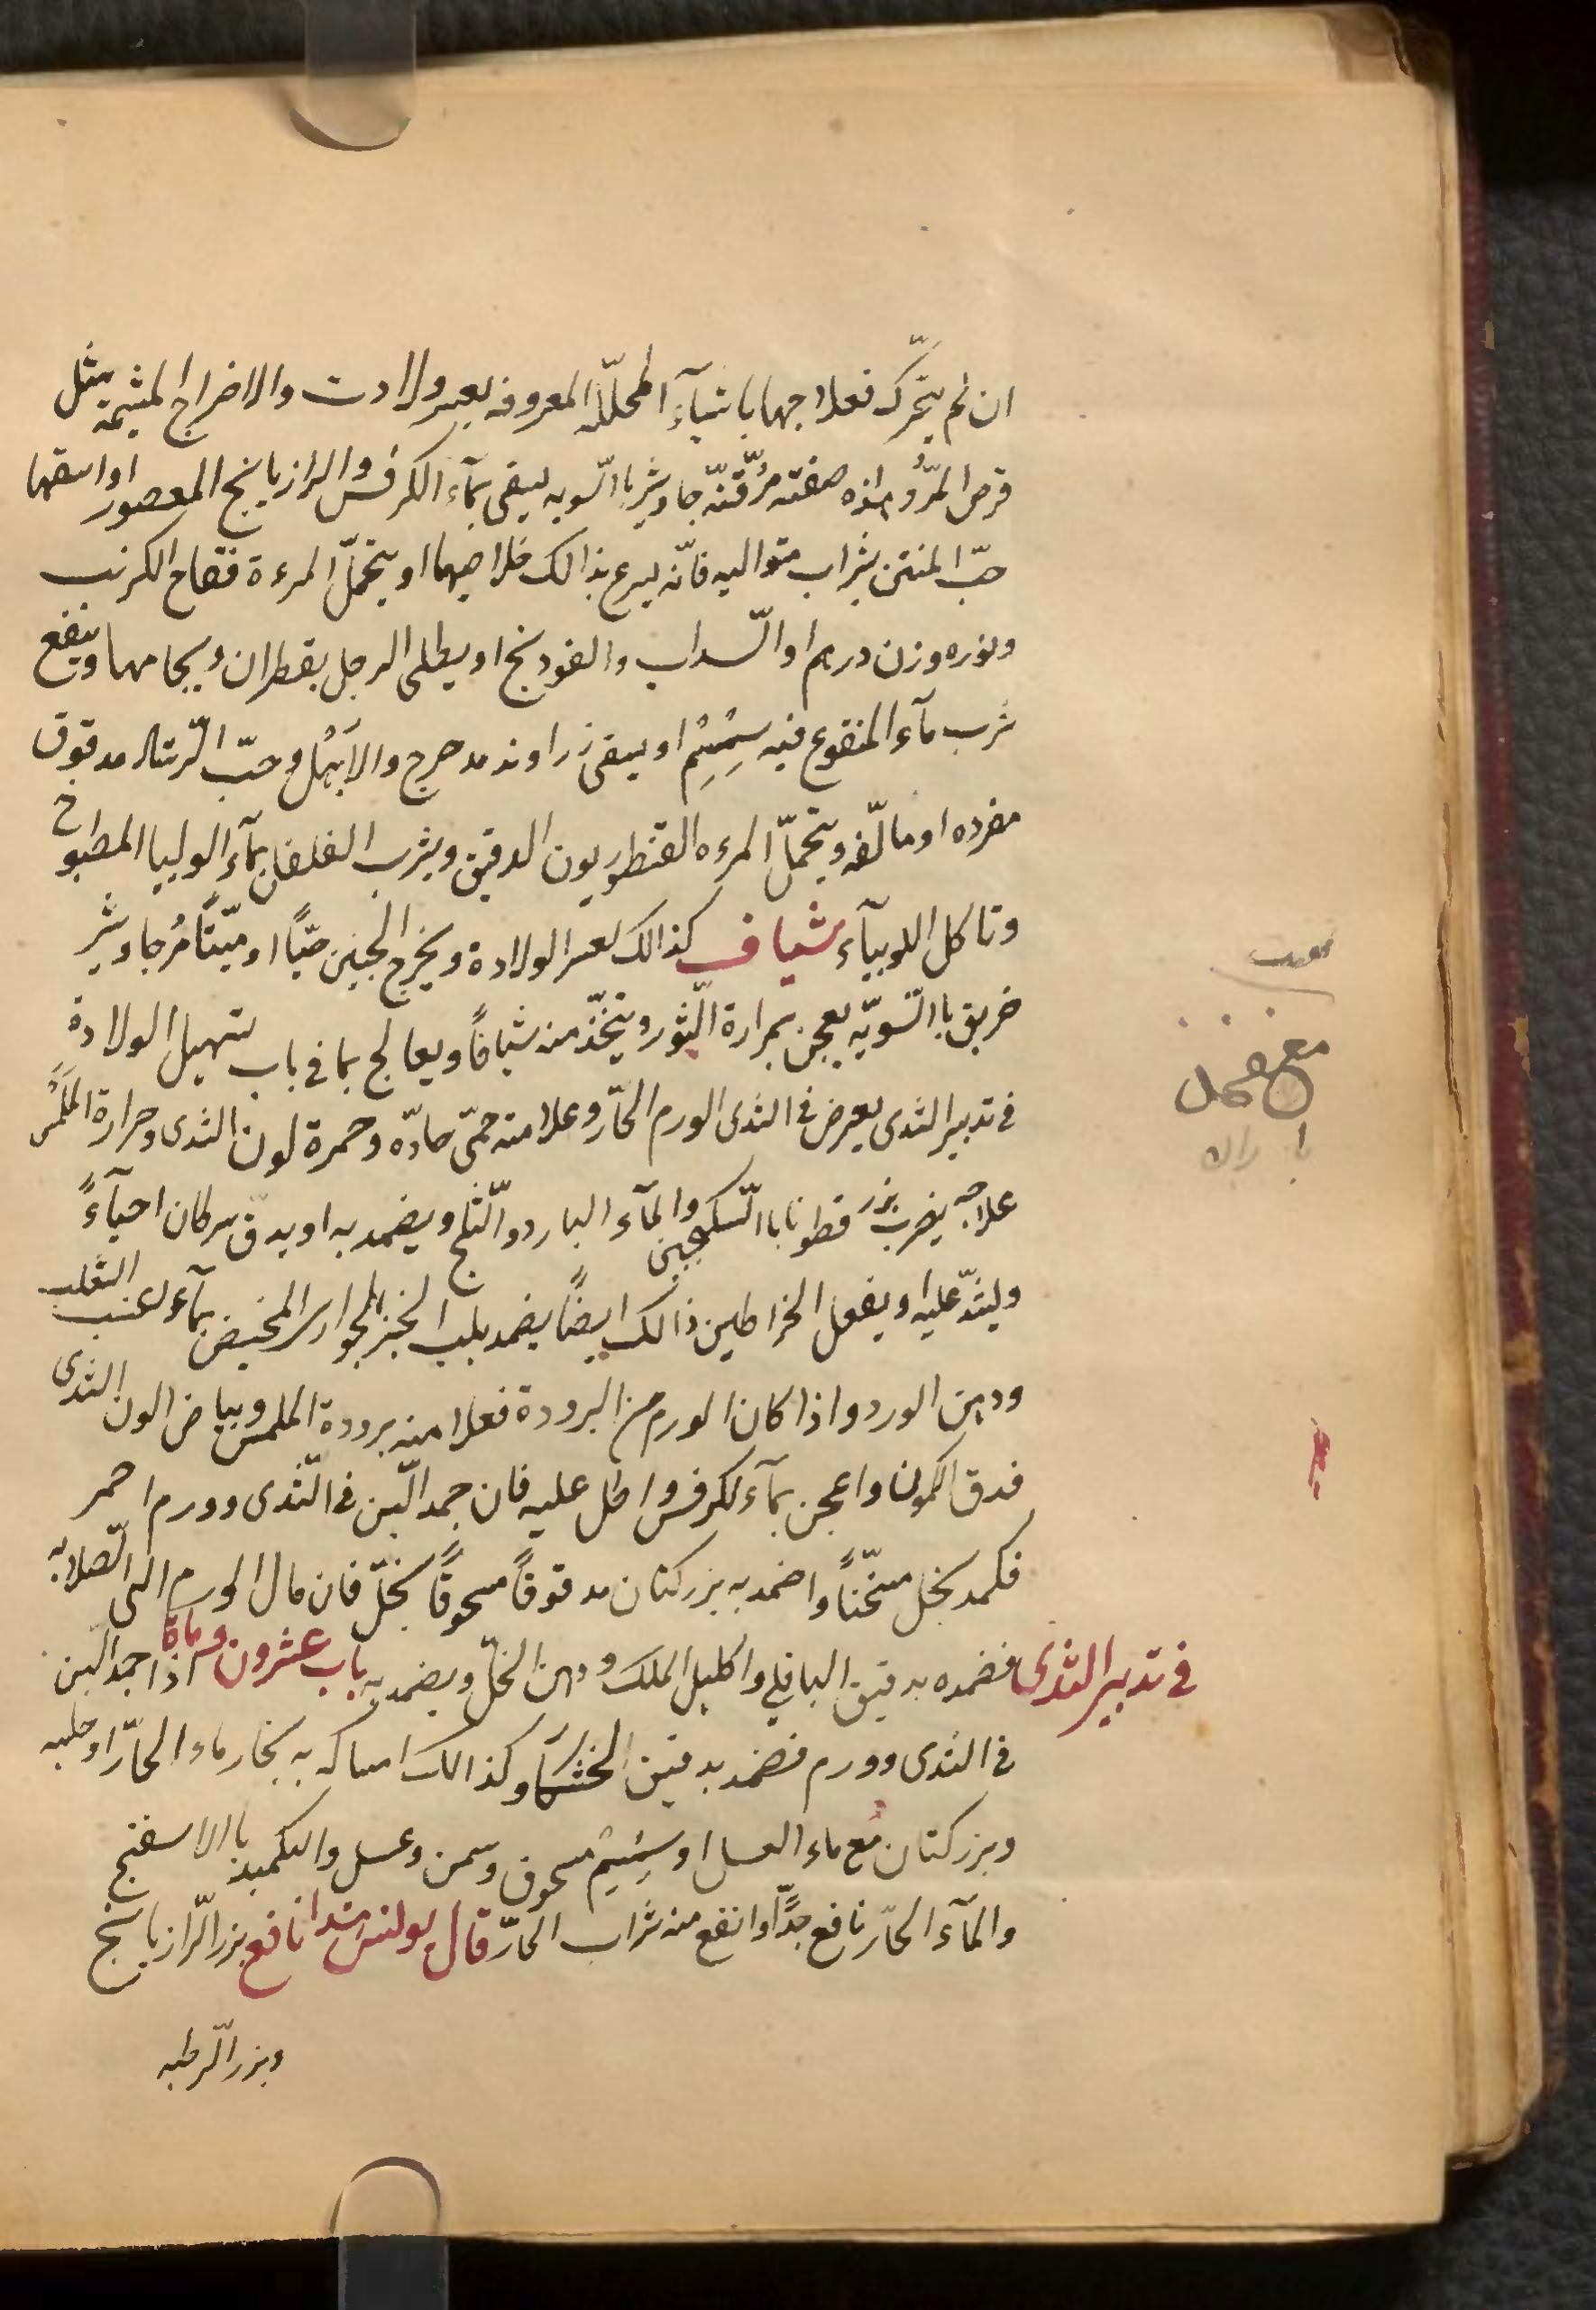 ان لم يتحرّك فعلاجها باشيآء المحلّلة المعروفه بعسر ولادت والاخراج المشيمة مثل
قرص المرّ وهذه صفته مرّ قنّه جاوشير باالسّويه يسقى بمآء الكرفس والرازيانج المعصور اواسقها
حبّ المنتن بشراب متواليه فانّه يسرع بذالك خلاصهما او يتحمّل المرءة فقاح الكرنب
ونوره وزن درهم اوالسّداب والفودنج او يطلى الرجل بقطران ويجامها وينفع
شرب مآء المنقوع فيه سِمْسِمْ او يسقى زراوند مدحرج والابهل وحبّ الرّشاد مدقوق
مفرده او مالّفه ويتحمّل المرءه القنطوريون الدقيق ويشرب الفلفل بمآء الوليا المطبوخ
وتاكل اللوبيآء شياف كذالك لعسر الولادة ويخرج الجنين حيّاً او ميّتاً مُر جاوشير
خربق باالسّويّه يعجن بمرارة الثّور ويتخّذ منه شيافاً ويعالج بما فى باب تسهيل الولادة
فى تدبير الثدى يعرض فى الثدى الورم الحارّ وعلامته حمّى حادّه وحمرة لون الثدى وحرارة الملمس
علاجه يضرب بزر قطونا باالسّكنجبين والمآء البارد والثّلج ويضمد به او يدقّ سرطان احيآءً
وليشدّ عليه او يفعل الخراطين ذالك ايضاً يضمد بلب الخبز الحوارى المخيض بمآء لعنب الثعلب
ودهن الورد واذا كان الورم من البرودة فعلامته برودة الملمس وبياض الون الثدى
فدق الكمون واعجن بمآء لكرفس واطل عليه فان جمد اللّبن فى الثّدى وورم احمر
فكمد بخل مسخّناً واضمد به بزر كتان مدقوقاً مسحوقاً بخلّ فان مال الورم الى الصّلابه
فى تدبير الثدى فضمده بدقيق الباقلى واكليل الملك ودهن الخلّ ويضمد به باب عشرون وماة اذا جمد اللّبن
فى الثدى وورم فضمد بدقيق الخشكار وكذالك امساكه به بخار ماء الحارّ او حلبه
وبزر كتان مع ماء العسل او سِمْسِم مسحوق وسمن وعسل والتكميد باالاسفنج
والمآء الحارّ نافع جدّاً وانفع منه شراب الحارّ قال بولس نافع بزر الرّازيانج
وبزر الرّطبه
مع